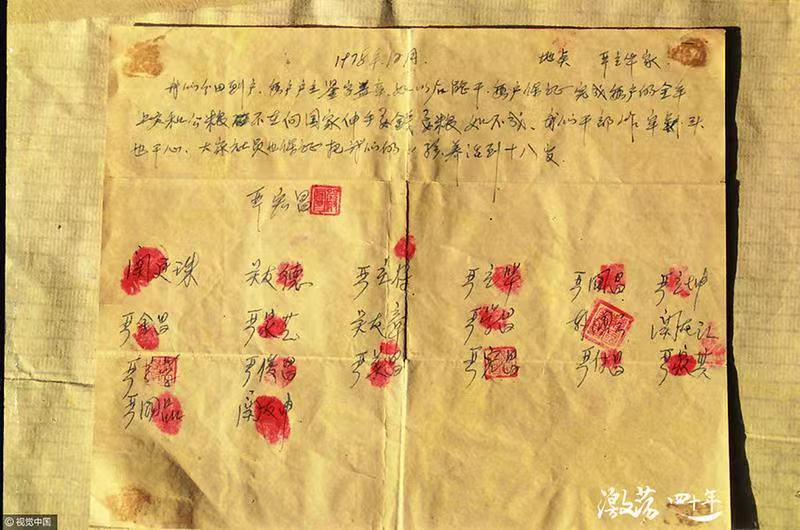 1978年12月. 地点 严立华家.
我们分田到户,每户户主签字盖章,如以后能干,每户保证完成每户的全年
上交和公粮,不在向国家伸手要钱要粮,如不成,我们干部作牢刹头
也干心,大家社员也保证把我们的小孩养活到十八岁.
严宏昌
关廷珠 关友德 严立符 严立华 严国昌 严立坤
严金昌 严家芝 关友章 严学昌 韩国云 关友江
严立学 严俊昌 严美昌 严宏昌 严付昌 严家其
严国品 关友申
激荡四十年
© 视觉中国